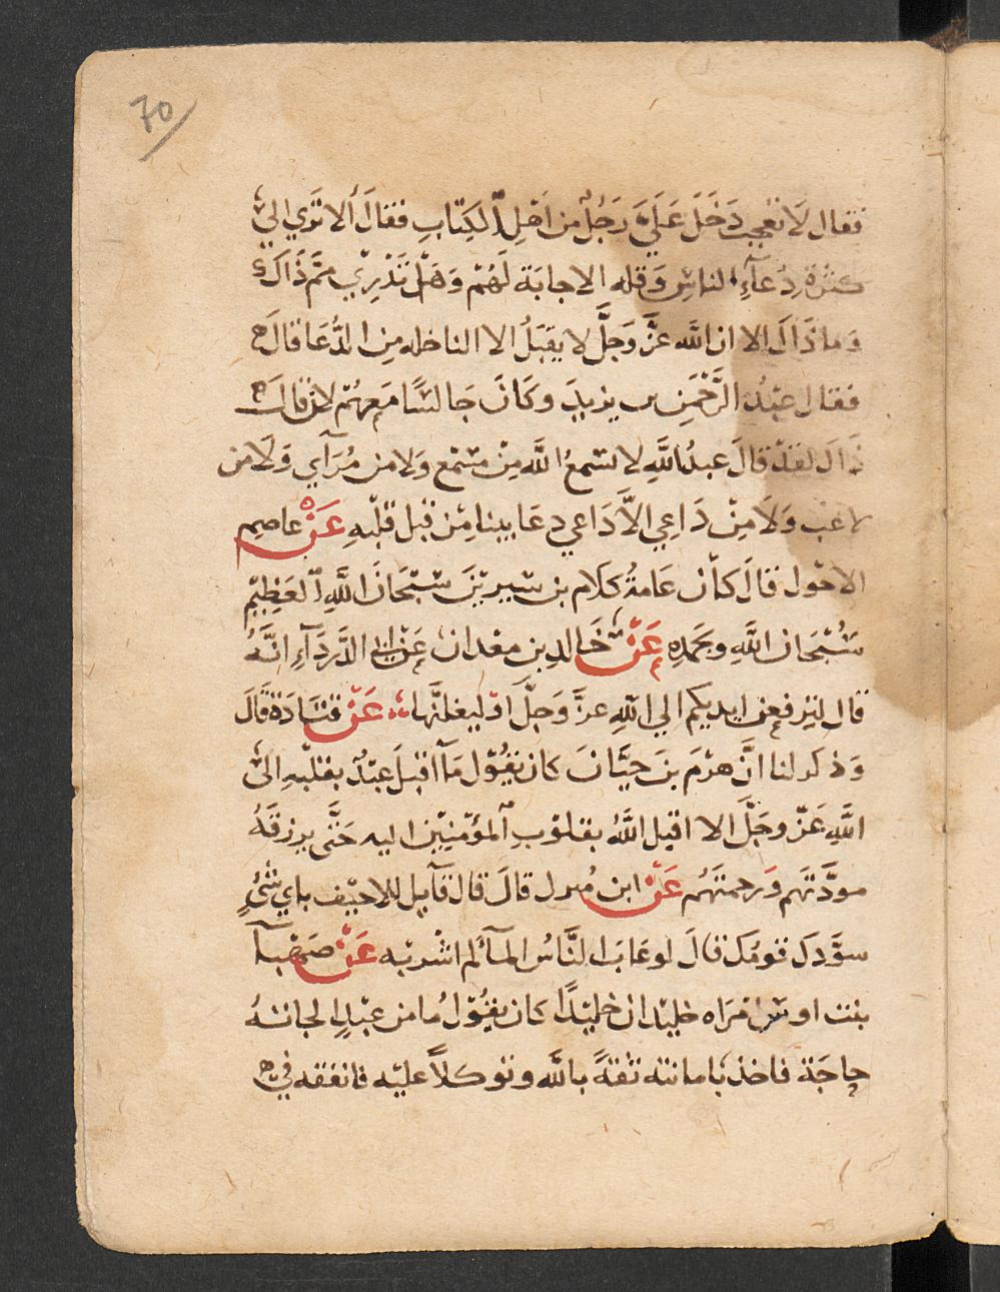 70
فقال لَا تعجب دَخَلَ عَلَيَّ رَجُلٌ من اَهْلِ الكِتَابِ فقالَ ألا تَرَي اليَ
كثرَة دُعَآءِ الناسِ وَقله الاجابَة لَهُمْ وَهَلْ تَدْرِيْ مِمَّ ذَاكَ
وَما ذَاكَ الا ان اللَّه عزَّ وَجَلَّ لا يقبَلُ الا الناخله مِن الدُّعَا قالَ
فقال عبْدُ الرَّحْمَنِ بن يزيدَ وكَانَ جَالسًا مَعهُمْ لان قالَ
ذَاكَ لقدْ قالَ عبدُ اللَّهِ لا يسْمعُ اللَّه مِنْ مسْمع وَلا من مُرَآي وَلَا من
لاعب وَلَا مِنْ دَاعِي الاَّ دَاعي دعَا بينا مِنْ قبل قلْبهِ عَنْ عاصِم
الاحْول قالَ كاَن عَامةُ كلَام بن سيريْنَ سُبْحَانَ اللَّهِ العَظِيْمِ
سُبْحَان اللَّهِ وبحَمدِه عَنْ خَالدِ بن معْدان عَنْ ابي الدَّردَآءِ انَّهُ
قال ليَرفعن ايديكم الي اللَّهِ عزَّ وَجلَّ اوْ ليغلنَّها عَنْ قتَادَة قَالَ
وَذكر لنا انَّ هرْمَ بنَ حيَّانَ كان يقُوْل مَا اقبلَ عبْدٌ بقلْبهِ الىَ
اللَّهِ عَزّ وجَلَّ الا اقبل اللَّهُ بقلوْبِ المؤْمنيْن اليه حَتَّى يرزقَهُ
مودَّتهَم وَرحمتَهُم عَنْ ابن مُبرل قالَ قال قآيل للاحيْف باي شَيْءٍ
سوَّدكَ قومُكَ قالَ لو عَابَ النَّاسُ المآ لم اشْربْه عَنْ صَهْبَآ
بنت اوس امْرَاه خليْد ان خليْدًا كان يقُوْلُ مَا من عبْدٍ الجاتهُ
حاجَة فاخذ بامانته ثقةً باللَّه وتوكلاً عليْه فانفقه في